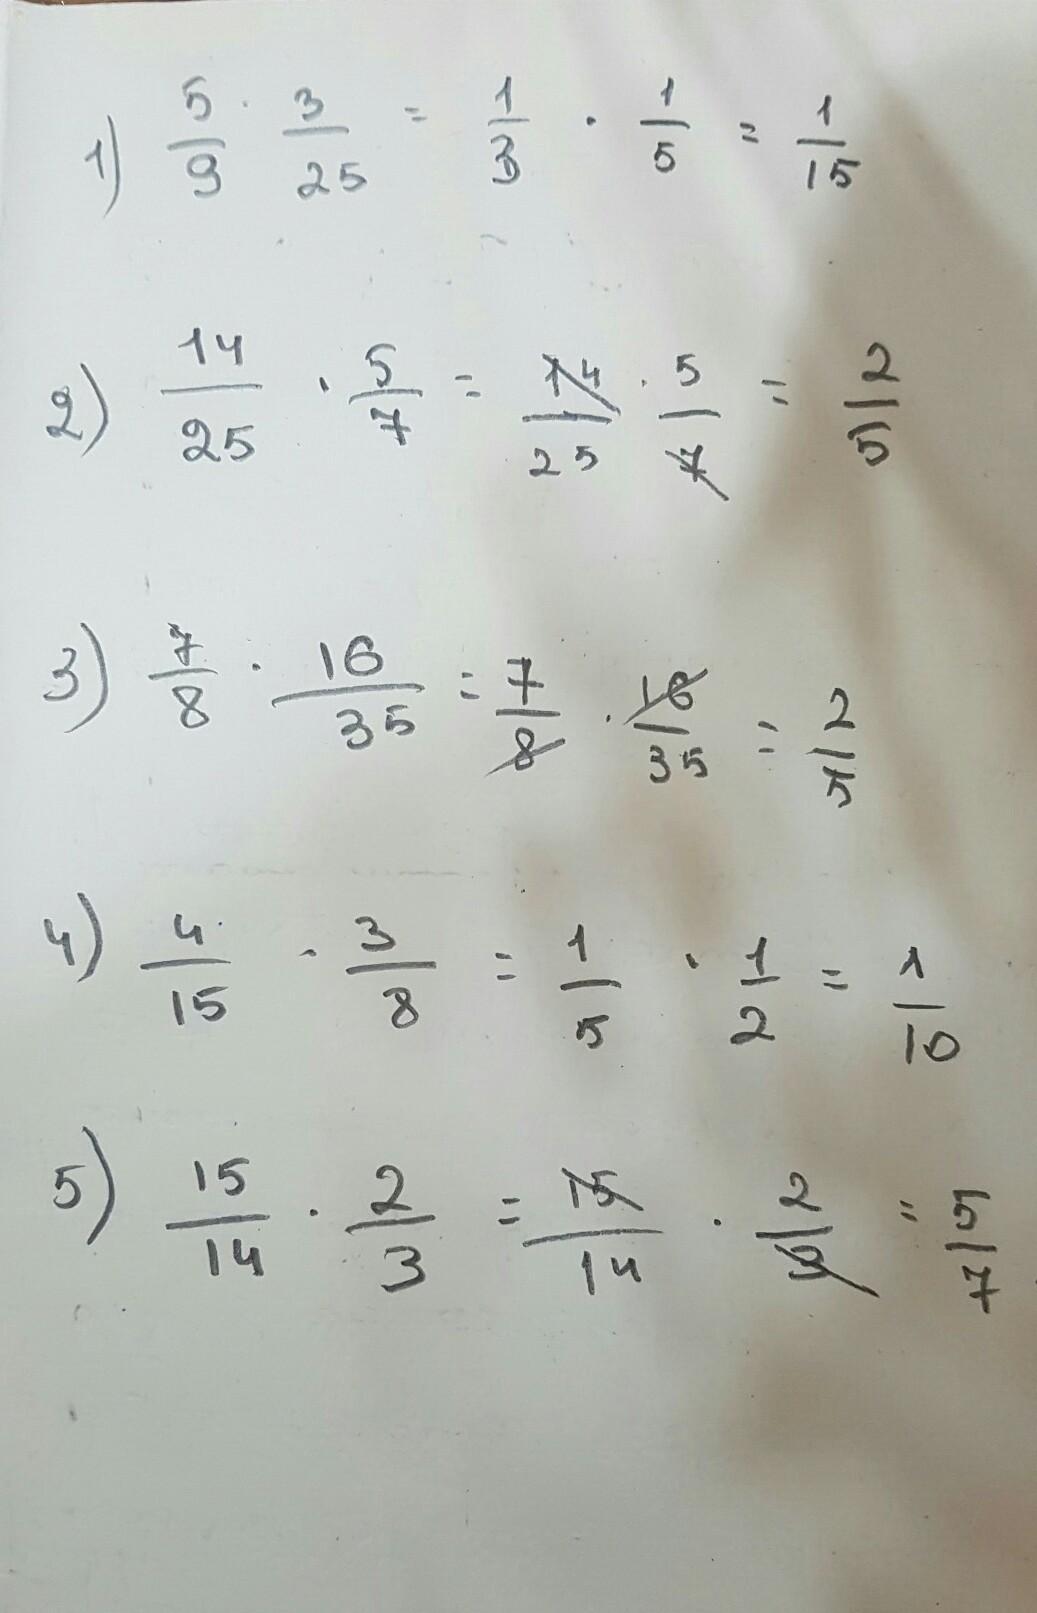 1) 5/9 · 3/25 = 1/3 · 1/5 = 1/15
2) 14/25 · 5/7 = 14/25 · 5/7 = 2/5
3) 7/8 · 16/35 = 7/8 · 16/35 = 2/5
4) 4/15 · 3/8 = 1/5 · 1/2 = 1/10
5) 15/14 · 2/3 = 15/14 · 2/3 = 5/7